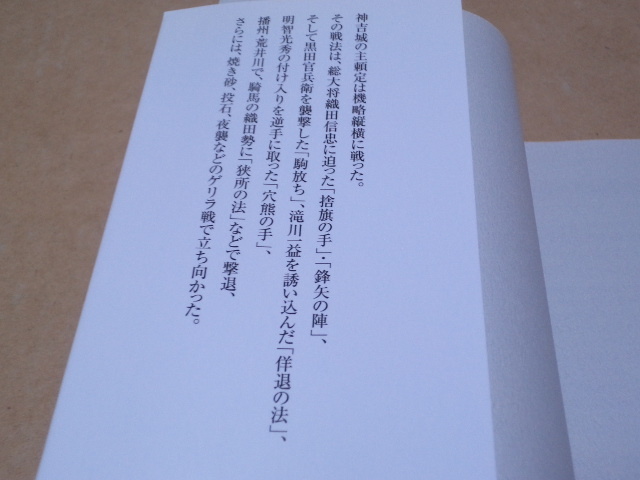 神吉城の主頼定は機略縦横に戦った。
その戦法は、総大将織田信忠に迫った「捨旗の手」・「鋒矢の陣」、
そして黒田官兵衛を襲撃した「駒放ち」、滝川一益を誘い込んだ「佯退の法」、
明智光秀の付け入りを逆手に取った「穴熊の手」、
播州・荒井川で、騎馬の織田勢に「狭所の法」などで撃退、
さらには、焼き砂、投石、夜襲などのゲリラ戦で立ち向かった。